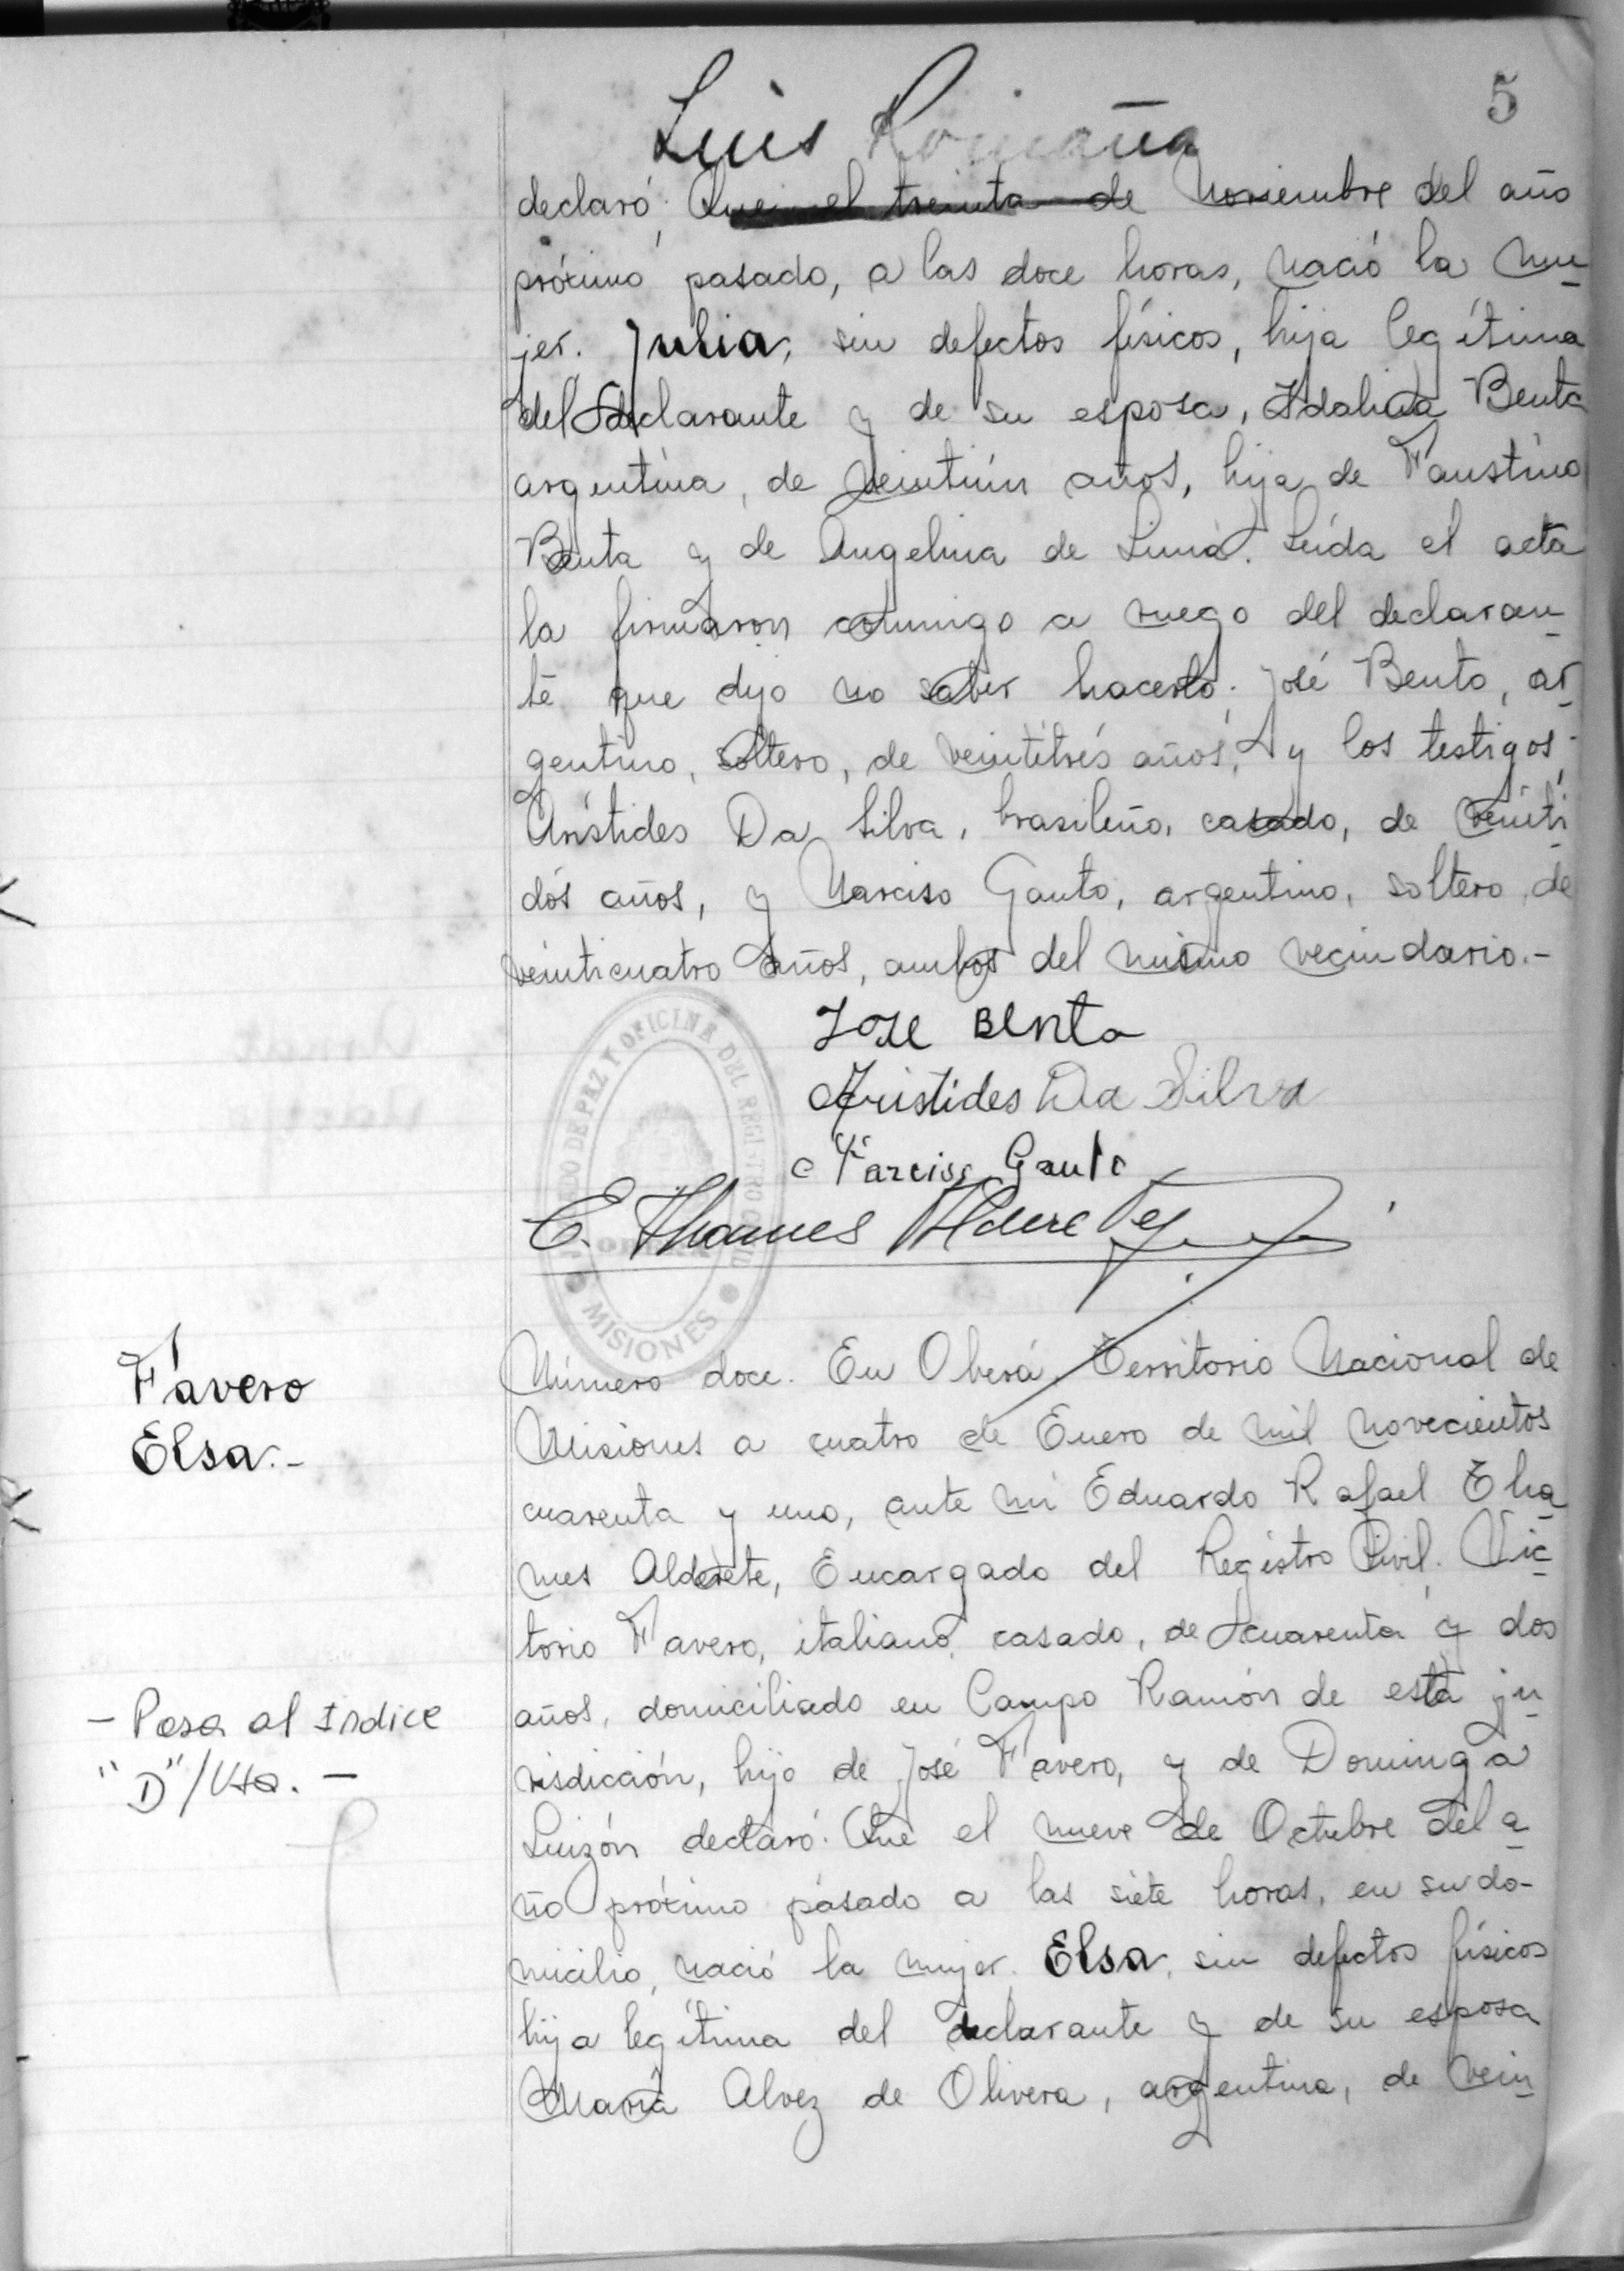 5
Luis Romaña
declaró: Que el treinta de Noviembre del año
próximo pasado, a las doce horas, nació la mu_
jer. Julia, sin defectos físicos, hija legítima
del declarante y de su esposa, Idalina Benta
argentina, de veintiún años, hija de Faustino
Benta y de Angelina de Lima. Leída el acta
la firmaron conmigo a ruego del declaran_
te que dijo no saber hacerlo: José Bento, ar_
gentino, soltero, de veintitrés años, y los testigos:
Arístides Da Silva, brasileño, casado, de veinti_
dós años, y Narciso Gauto, argentino, soltero, de
veinticuatro años, ambos del mismo vecindario.-
JOSE BENto
Aristides Da Silva
Narciso Gauto
E. Thames Alderete
JUZGADO DE PAZ Y OFICINA DEL REGISTRO CIVIL
MISIONES
Favero
Elsa.-
Número doce. En Oberá, Territorio Nacional de
Misiones a cuatro de Enero de mil novecientos
cuarenta y uno, ante mi Eduardo Rafael Tha_
mes Alderete, Encargado del Registro Civil. Vic_
torio Favero, italiano, casado, de cuarenta y dos
años, domiciliado en Campo Ramón de esta ju_
risdicción, hijo de José Favero, y de Dominga
Luizón declaró: Que el nueve de Octubre del a_
ño próximo pasado a las siete horas, en su do-
micilio, nació la mujer. Elsa, sin defectos físicos
hija legítima del declarante y de su esposa
María Alvez de Olivera, argentina, de vein_
- Pasa al Indice
"D"/Vta. -